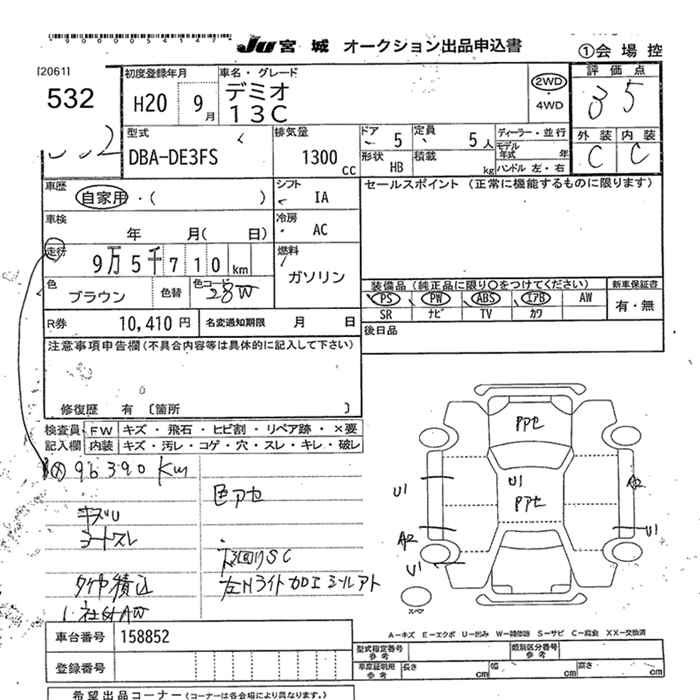 JU 宮城 オークション出品申込書
①会場控
[2061]
532
初度登録年月
H20 9月
車名・グレード
デミオ
13C
2WD
・4WD
評価点
3 5
型式
DBA-DE3FS
排気量
1300 cc
ドア 5
定員 5人
形状 HB
積載 kg
ディーラー・並行
モデル年式 年
ハンドル 左・右
外装 内装
C C
車歴
自家用・( )
シフト
IA
セールスポイント (正常に機能するものに限ります)
車検
年 月( 日)
冷房
AC
走行
9万5千710km
燃料
ガソリン
色
ブラウン
色替
色コード
28W
装備品 (純正品に限り〇をつけてください)
新車保証書
PS PW ABS エアB AW
有・無
SR ナビ TV カワ
R券 10,410円
名変通知期限 月 日
後日品
注意事項申告欄 (不具合内容等は具体的に記入して下さい)
修復歴 有 〔箇所 〕
検査員記入欄
FW キズ・飛石・ヒビ割・リペア跡・×要
内装 キズ・汚レ・コゲ・穴・スレ・キレ・破レ
96390 Km
色アセ
キズU
シートスレ
下回りSC
タイヤ積込
左Hライト加工シールアト
1.社外AW
Pアセ
U1
Pアセ
U1
A2
A2
U1
U1
スペア
A-キズ E-エクボ U-凹み W-補修跡 S-サビ C-腐食 XX-交換済
車台番号 158852
登録番号
型式指定番号 参考
類別区分番号 参考
車庫証明用 参考
長さ cm
幅 cm
高さ cm
希望出品コーナー (コーナーは各会場により異なります。)